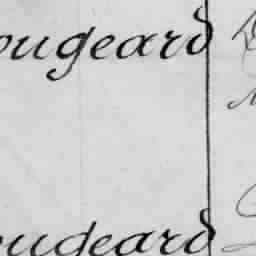 ougeard
ougeard